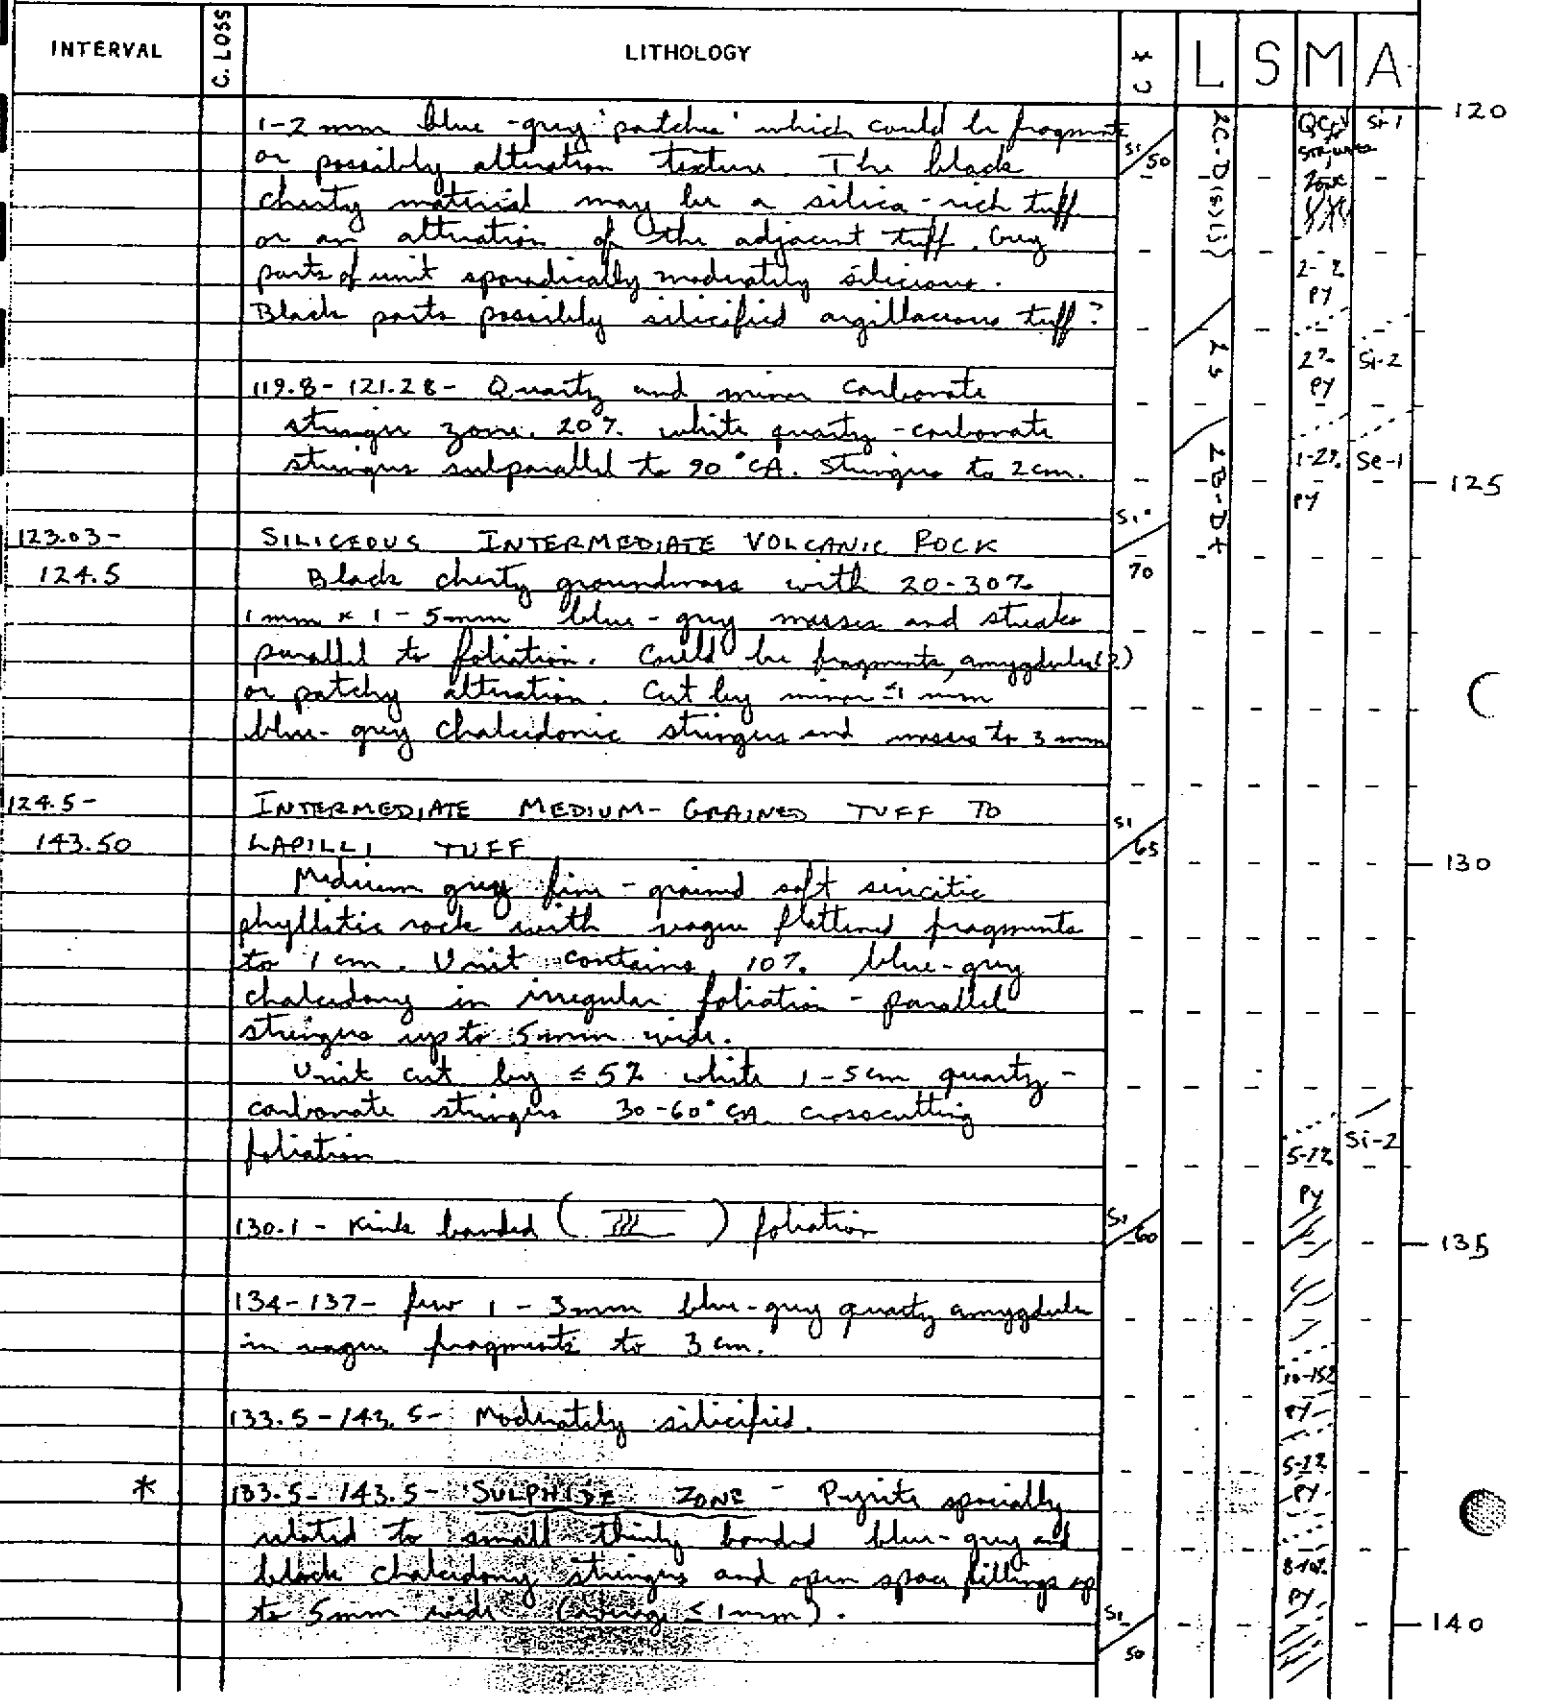 INTERVAL C. LOSS LITHOLOGY * U L S M A
1-2 mm blue-grey 'patches' which could be fragments
or possibly alteration texture. The black
cherty material may be a silica-rich tuff
or an alteration of the adjacent tuff. Grey
parts of unit sporadically moderately siliceous.
Black parts possibly silicified argillaceous tuff?
119.8-121.28- Quartz and minor carbonate
stringer zone. 20% white quartz-carbonate
stringers subparallel to 90°CA. Stringers to 2cm.
123.03- SILICEOUS INTERMEDIATE VOLCANIC ROCK
124.5 Black cherty groundmass with 20-30%
1mm x 1-5mm blue-grey masses and streaks
parallel to foliation. Could be fragments, amygdules(?)
or patchy alteration. Cut by minor ≤1 mm
blue-grey chalcedonic stringers and masses to 3 mm
124.5- INTERMEDIATE MEDIUM-GRAINED TUFF TO
143.50 LAPILLI TUFF
Medium grey fine-grained soft sericitic
phyllitic rock with vague flattened fragments
to 1 cm. Unit contains 10% blue-grey
chalcedony in irregular foliation-parallel
stringers up to 5mm wide.
Unit cut by ≤5% white 1-5cm quartz-
carbonate stringers 30-60° CA crosscutting
foliation
130.1 - Kink banded ( ) foliation
134-137- few 1-3mm blue-grey quartz amygdules
in vague fragments to 3 cm.
133.5-143.5- Moderately silicified.
* 133.5-143.5- SULPHIDE ZONE - Pyrite spacially
related to small thinly banded blue-grey and
black chalcedony stringers and open space fillings up
to 5mm wide (average ≤1mm).
S1 50
S1 70
S1 65
S1 60
S1 50
2C-D(s)(i)
2S
2B-Dt
QC
stringer
Zone
PY
2%
PY
1-2%
PY
5-7%
PY
10-15%
PY
5-7%
PY
8-10%
PY
Si-1
Si-2
Se-1
Si-2
120
125
130
135
140